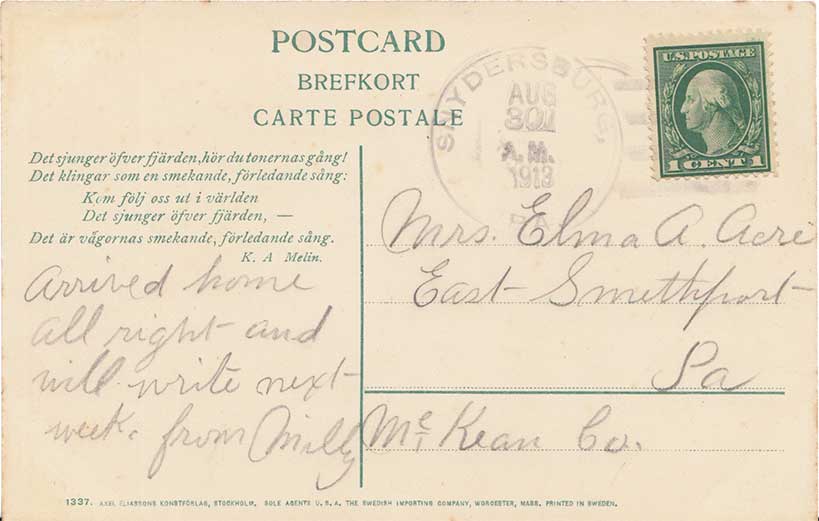 POSTCARD
BREFKORT
CARTE POSTALE
SNYDERSBURG,
AUG
30
A.M.
1913
PA.
U.S. POSTAGE
1 CENT 1
Det sjunger öfver fjärden, hör du tonernas gång!
Det klingar som en smekande, förledande sång:
Kom följ oss ut i världen
Det sjunger öfver fjärden, —
Det är vågornas smekande, förledande sång.
K. A Melin.
Arrived home
all right and
will write next
week. from Milly
Mrs. Elma A. Acre
East Smethport
Pa
Mc Kean Co.
1337. AXEL ELIASSONS KONSTFÖRLAG, STOCKHOLM. SOLE AGENTS U.S.A. THE SWEDISH IMPORTING COMPANY, WORCESTER, MASS. PRINTED IN SWEDEN.